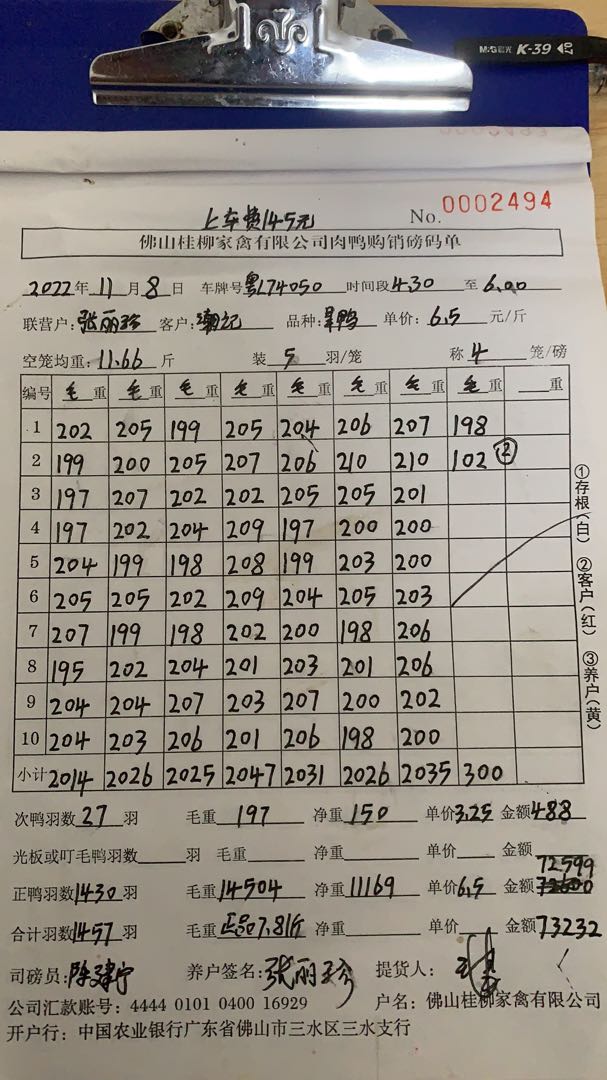 M&G晨光 K-39
上车费145元 No. 0002494
佛山桂柳家禽有限公司肉鸭购销磅码单
2022年11月8日 车牌号粤L74050 时间段4.30至6.00
联营户:张丽珍 客户:潮记 品种: 鸭 单价:6.5元/斤
空笼均重:11.66斤 装5羽/笼 称4笼/磅
编号 毛重 毛重 毛重 毛重 毛重 毛重 毛重 毛重 重
1 202 205 199 205 204 206 207 198
2 199 200 205 207 206 210 210 102 ②
3 197 207 202 202 205 205 201
4 197 202 204 209 197 200 200
5 204 199 198 208 199 203 200
6 205 205 202 209 204 205 203
7 207 199 198 202 200 198 206
8 195 202 204 201 203 201 206
9 204 204 207 203 207 200 202
10 204 203 206 201 206 198 200
小计 2014 2026 2025 2047 2031 2026 2035 300
①存根(白) ②客户(红) ③养户(黄)
次鸭羽数27羽 毛重197 净重150 单价3.25 金额488
光板或叮毛鸭羽数 羽 毛重 净重 单价 金额
72599
正鸭羽数1430羽 毛重14504 净重11169 单价6.5 金额72600
合计羽数1457羽 毛重正品7.81斤 净重 单价 金额73232
司磅员: 养户签名:张丽珍 提货人:
公司汇款账号:4444 0101 0400 16929 户名:佛山桂柳家禽有限公司
开户行:中国农业银行广东省佛山市三水区三水支行